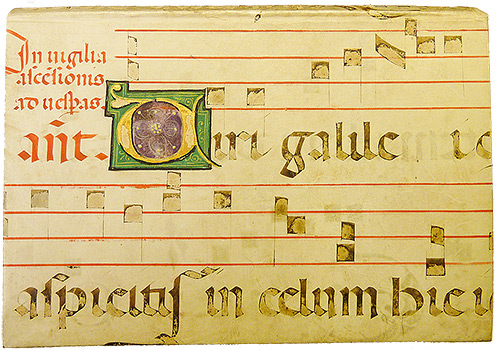 In uigilia
ascēsionis
ad uesꝑas.
añt. Uiri galile
aspicitis in celum hic